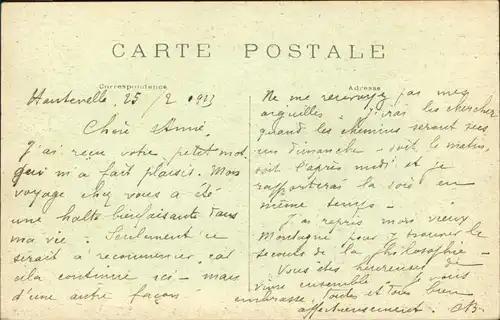 CARTE POSTALE
Correspondance
Adresse
Hauteville 25/2 1923
Chère Anna,
J'ai reçu votre petit mot
qui m'a fait plaisir. Mon
voyage chez vous a été
une halte bienfaisante dans
ma vie. Seulement ce
serait à recommencer, car
cela continue ici - mais
d'une autre façon
Ne me renvoyez pas mes
aiguilles - j'irai les chercher
quand les chemins seront secs
un dimanche - soit le matin,
soit l'après midi et je
rapporterai la soie en
même temps -
J'ai repris mon vieux
Montaigne pour y trouver le
secours de la philosophie -
Vous êtes heureuses de
vivre ensemble. Je vous
embrasse toutes et tous bien
affectueusement.